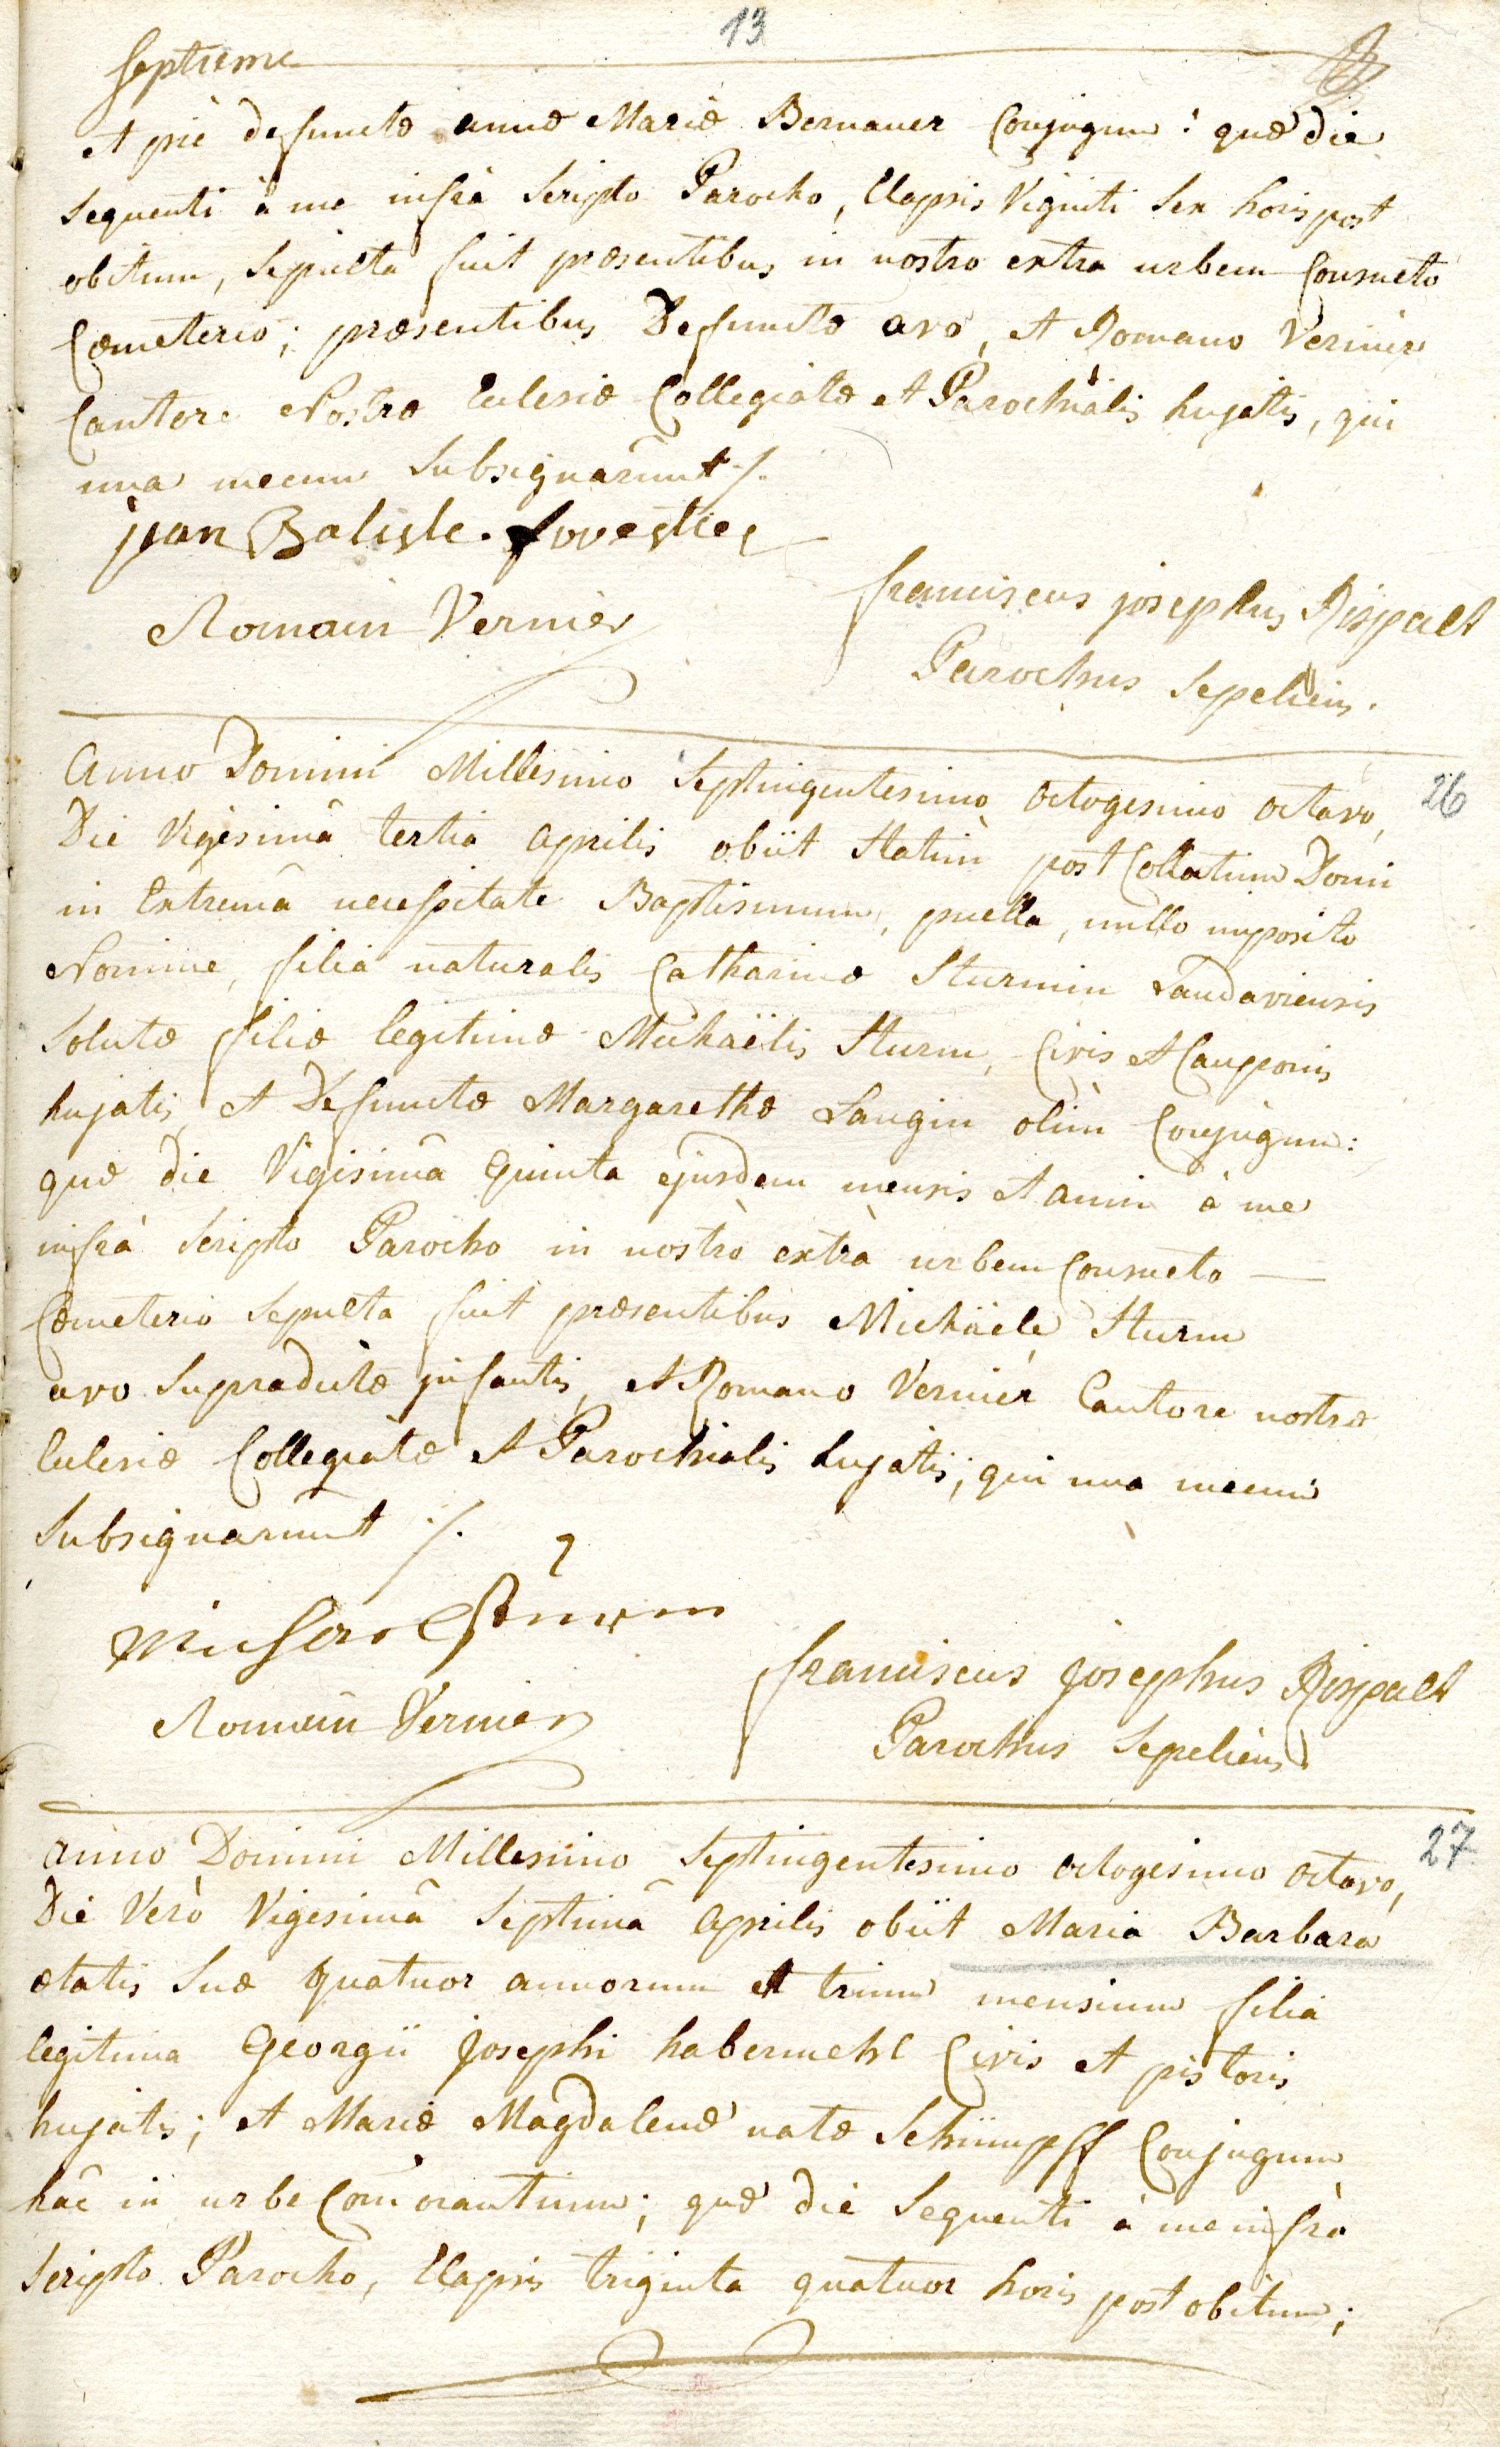 13
Septieme
et piè defunctæ annæ Mariæ Bernauer Conjugum: quæ die
sequenti à me infrà scripto Parocho, Elapsis Viginti sex horis post
obitum, sepulta fuit præsentibus in nostro extra urbem Consueto
Cœmeterio; præsentibus Defunctæ avo, et Romano Vernier
Cantore Nostræ Eclesiæ Collegiatæ et Parochialis hujatis, qui
una mecum subsignarunt ./.
jean Batiste
Romain Vernier
franciscus josephus Rispalt
Parochus sepeliens.
26
Anno Domini Millesimo Septingentesimo octogesimo octavo,
Die Vigesimâ tertia aprilis obiit statim post Collatum Domi
in Extremâ necessitate Baptismum, puella, nullo imposito
Nomine, filia naturalis Catharinæ Sturmin Landaviensis
solutæ filiæ legitimæ Michaëlis Sturm, Civis et Cauponis
hujatis, et Defunctæ Margarethæ Langin olim Conjugum:
quæ die Vigisimâ Quinta ejusdem mensis et anni à me
infrà scripto Parocho in nostrò extrà urbem Consueto —
Cœmeterio sepulta fuit præsentibus Michäele Sturm
avo supradictæ infantis, et Romano Vernier Cantore nostræ
Eclesiæ Collegiatæ et Parochialis hujatis; qui una mecum
subsignarunt ./.
Michael Sturm
Romain Vernier
franciscus josephus Rispalt
Parochus sepeliens
27
anno Domini Millesimo Septingentesimo octogesimo octavo,
Die Verò Vigesimâ Septimâ aprilis obiit Maria Barbara
ætatis suæ quatuor annorum et trium mensium filia
legitima Georgii josephi habermehl Civis et pistoris
hujatis; et Mariæ Magdalenæ natæ Schimpff Conjugum
hâc in urbe Com̄orantium; quæ die sequenti à me infrà
scripto Parocho, Elapsis triginta quatuor horis post obitum;